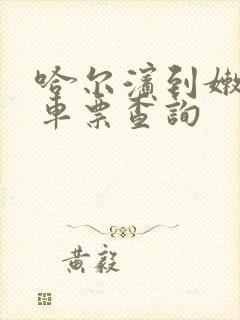 哈尔滨到嫩
车票查询
黄毅